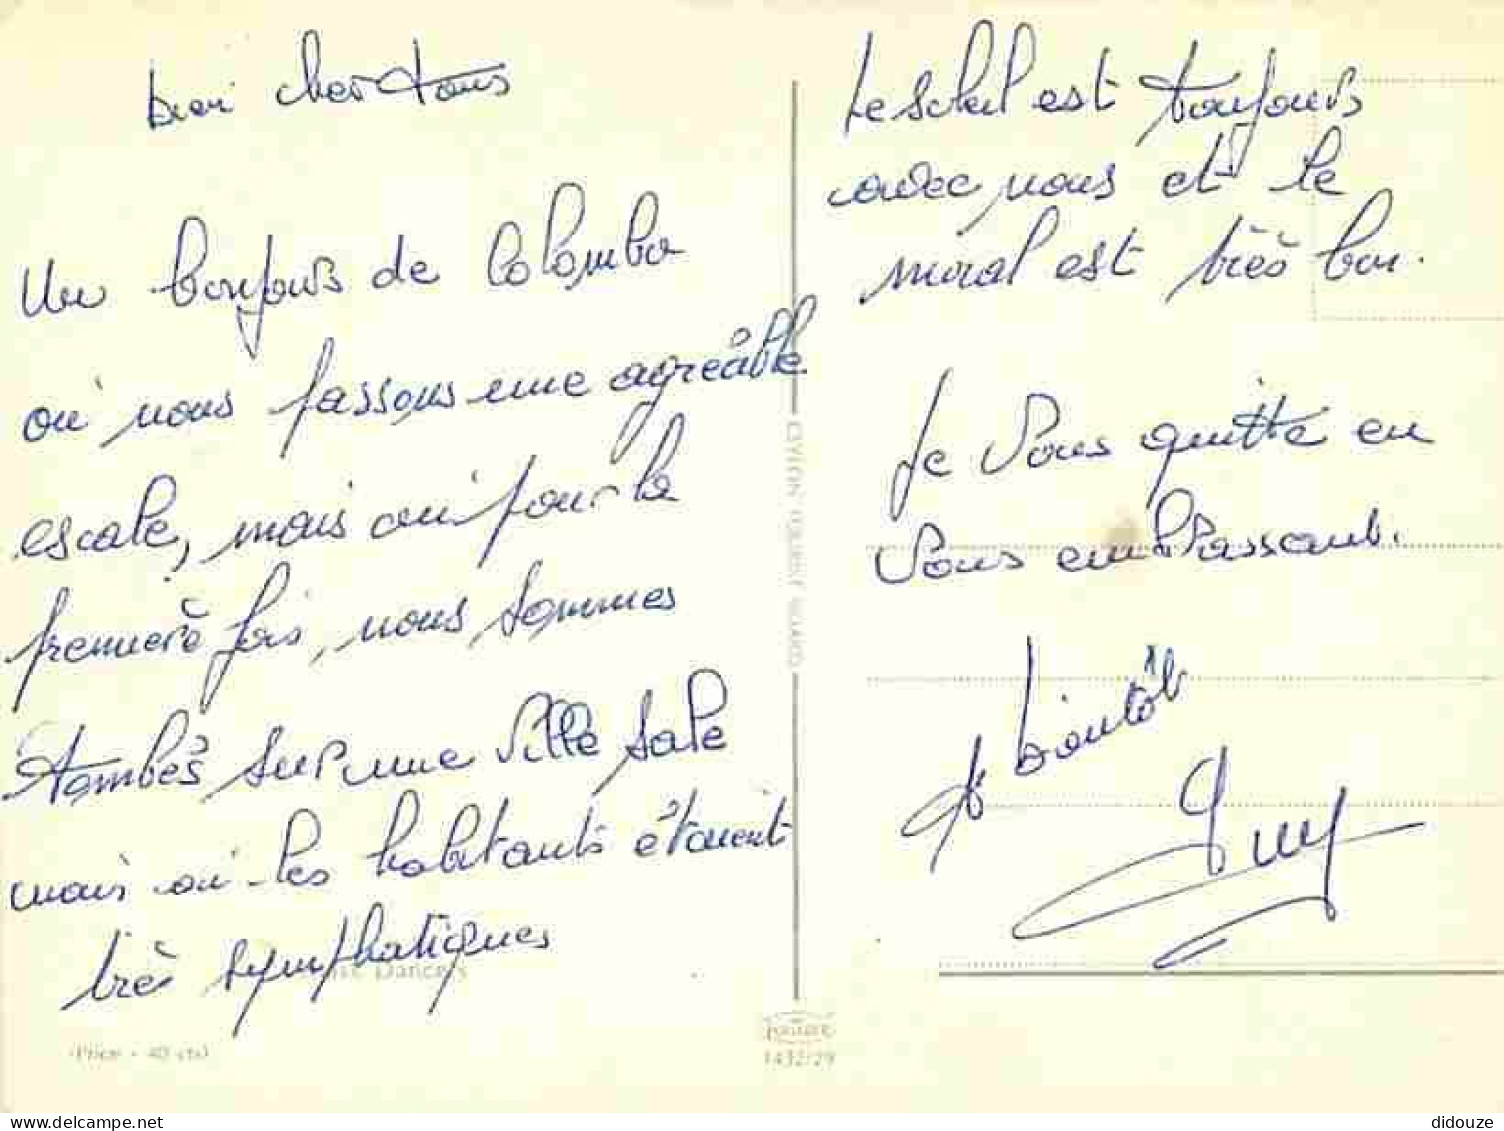 bien cher tous
Un bonjours de Colombo
où nous passons une agréable
escale, mais oui pour la
première fois, nous sommes
tombés sur une ville sale
mais où les habitants étaient
très sympathiques
Dancers
(Price - 40 cts)
Le soleil est toujours
avec nous et le
moral est très bon.
Je vous quitte en
vous embrassant.
A bientôt
Guy
CEYLON
1432/29
didouze